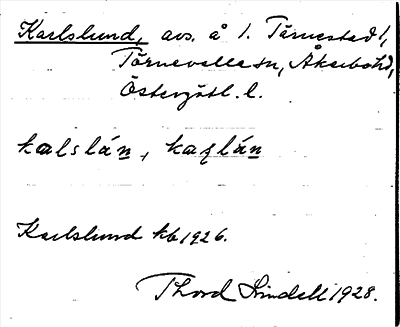 Karlslund, avs. å 1. Tärnestad 1,
Törnevalla sn, Åkerbo hd,
Östergötl. l.
kalslán, kaɽlán
Karlslund kb 1926.
Thord Lindell 1928.